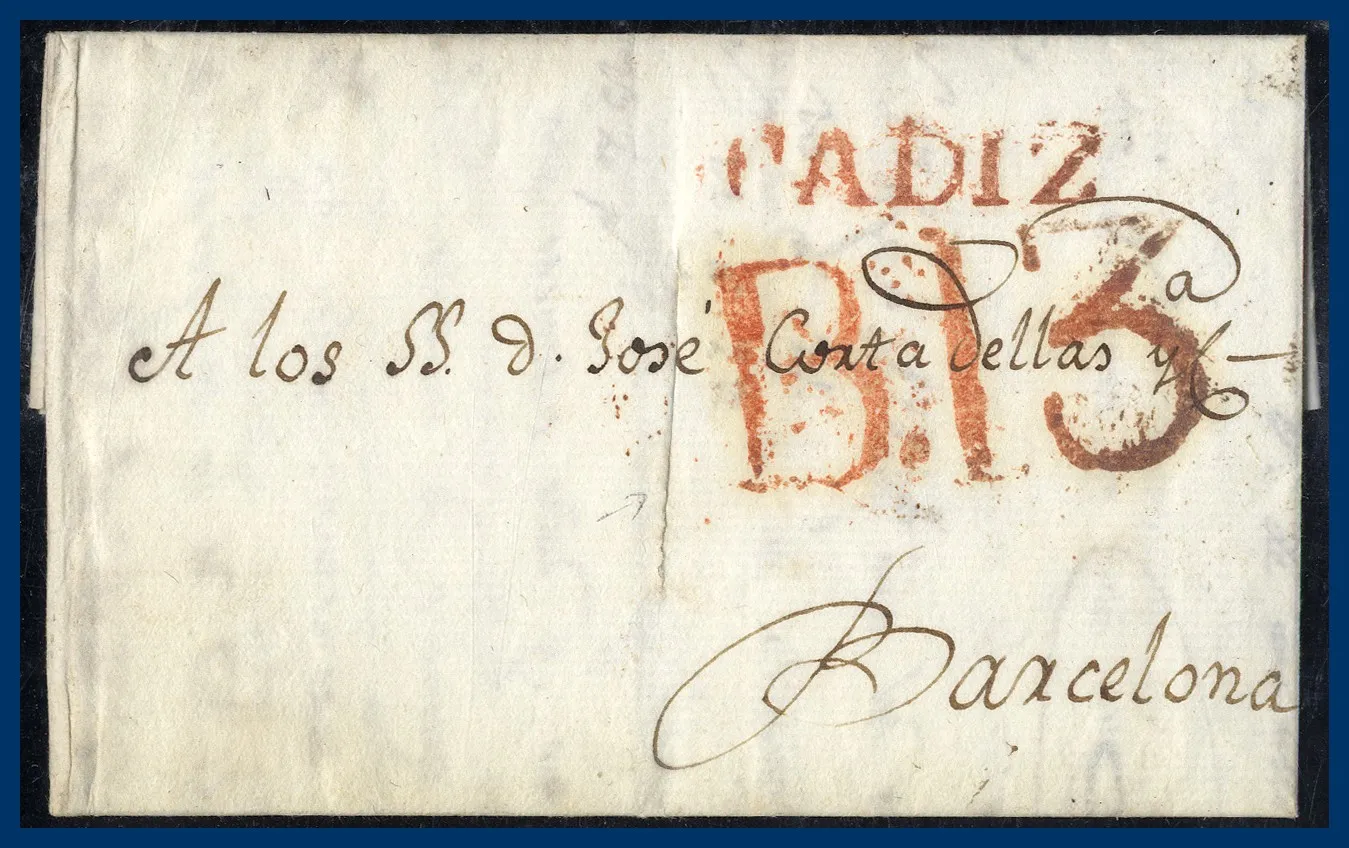 CADIZ
B.13
A los SS. d. José Cortadellas y Cª
Barcelona